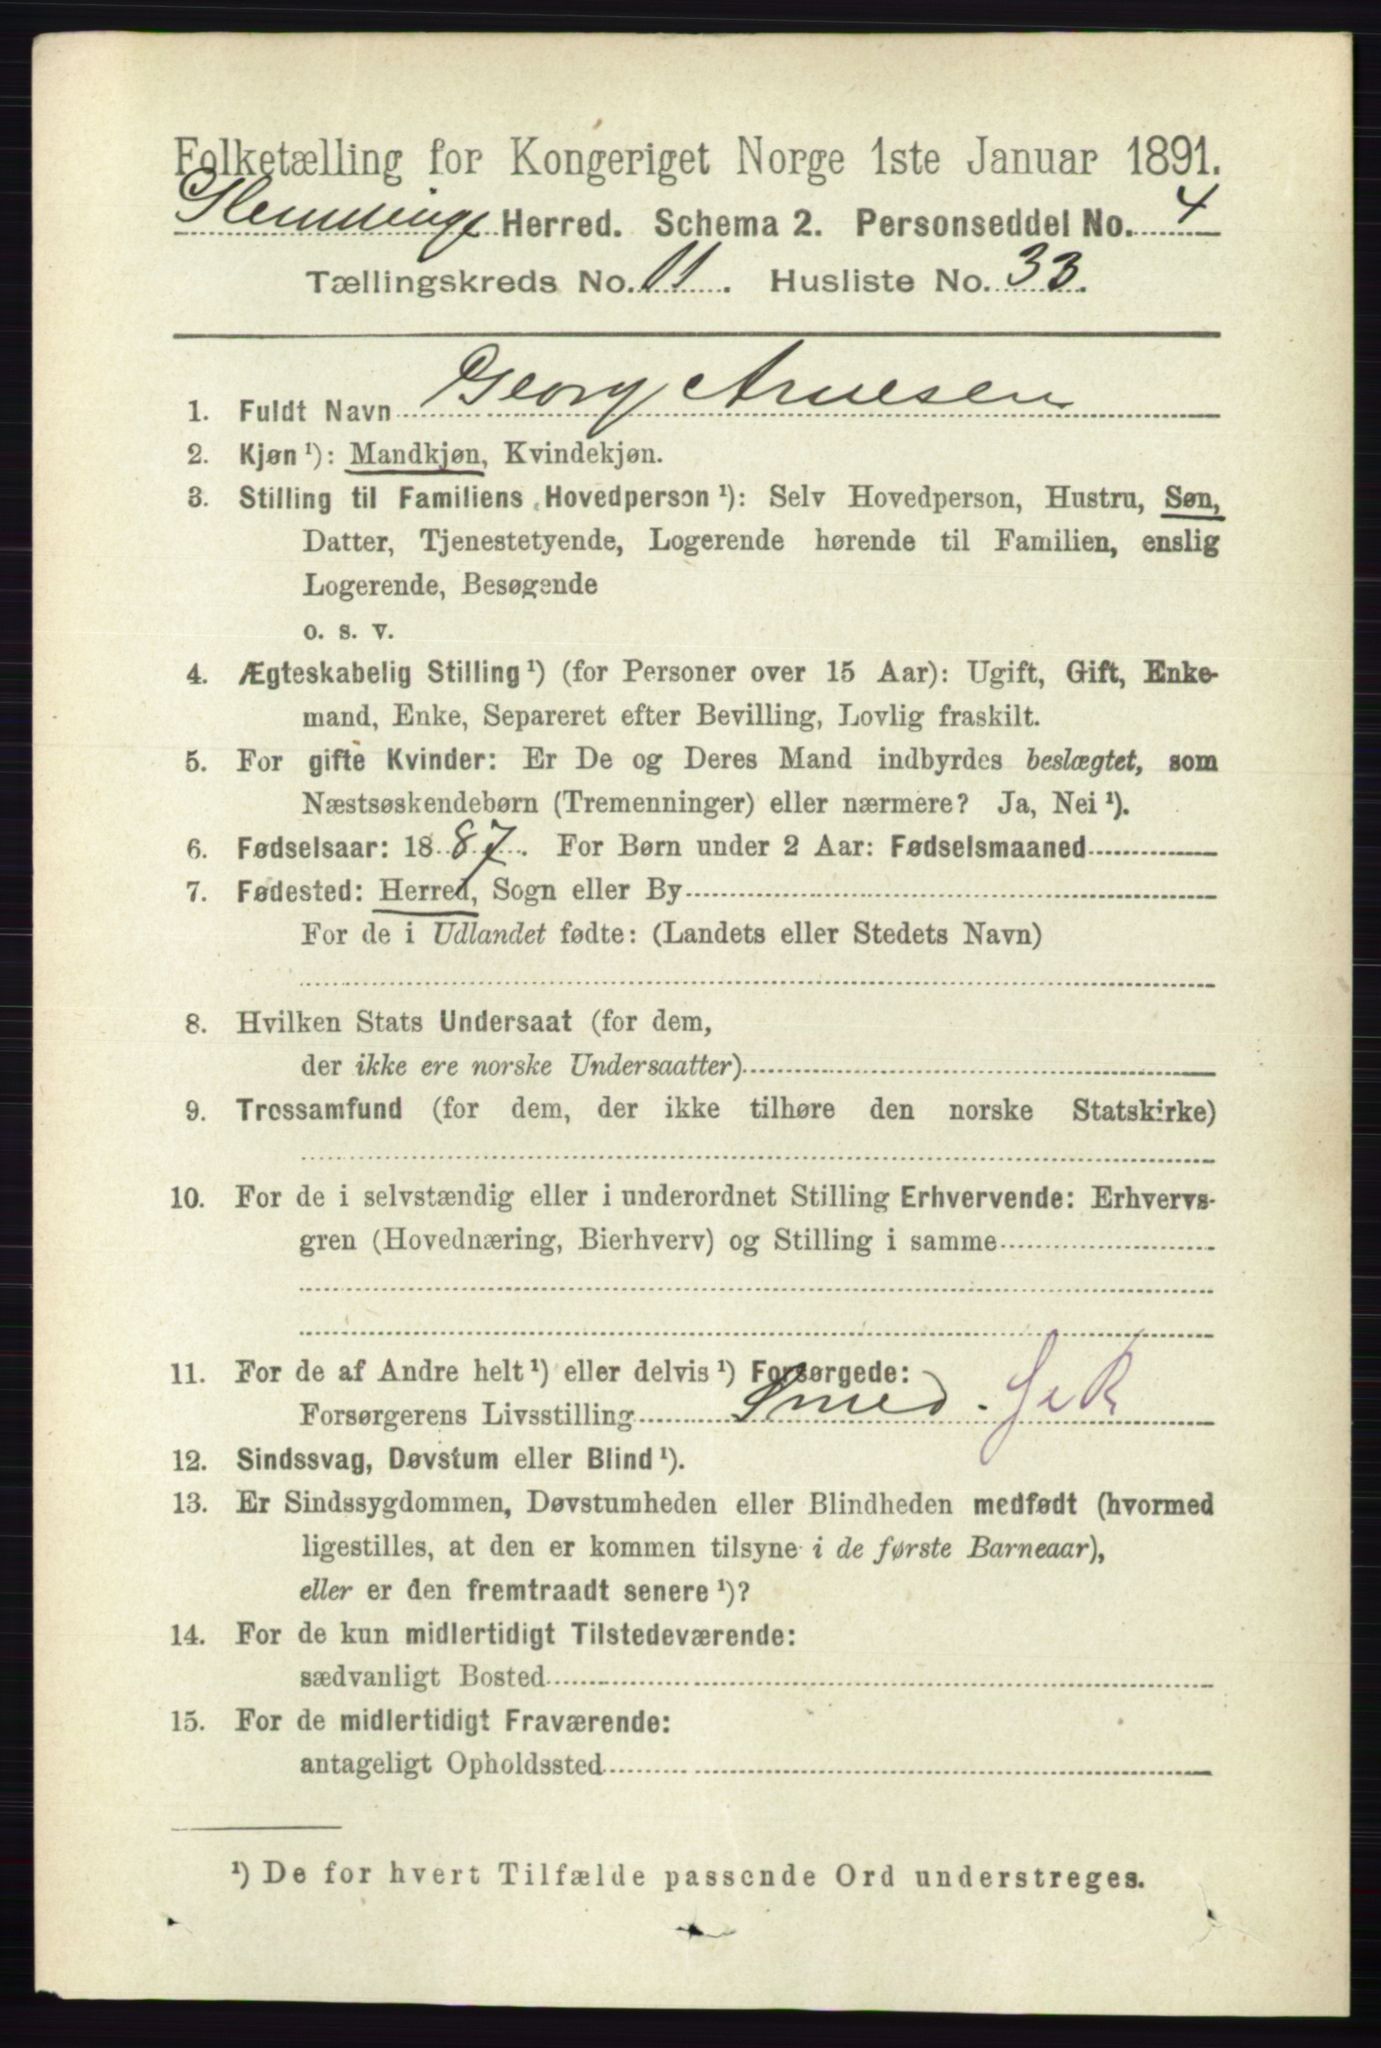 Folketælling for Kongeriget Norge 1ste Januar 1891.
Glemminge Herred. Schema 2. Personseddel No. 4
Tællingskreds No. 11. Husliste No. 33.
1. Fuldt Navn Georg Arnesen
2. Kjøn ¹): Mandkjøn, Kvindekjøn.
3. Stilling til Familiens Hovedperson ¹): Selv Hovedperson, Hustru, Søn,
Datter, Tjenestetyende, Logerende hørende til Familien, enslig
Logerende, Besøgende
o. s. v.
4. Ægteskabelig Stilling ¹) (for Personer over 15 Aar): Ugift, Gift, Enke-
mand, Enke, Separeret efter Bevilling, Lovlig fraskilt.
5. For gifte Kvinder: Er De og Deres Mand indbyrdes beslægtet, som
Næstsøskendebørn (Tremenninger) eller nærmere? Ja, Nei ¹).
6. Fødselsaar: 1887. For Børn under 2 Aar: Fødselsmaaned
7. Fødested: Herred, Sogn eller By
For de i Udlandet fødte: (Landets eller Stedets Navn)
8. Hvilken Stats Undersaat (for dem,
der ikke ere norske Undersaatter)
9. Trossamfund (for dem, der ikke tilhøre den norske Statskirke)
10. For de i selvstændig eller i underordnet Stilling Erhvervende: Erhvervs-
gren (Hovednæring, Bierhverv) og Stilling i samme
11. For de af Andre helt ¹) eller delvis ¹) Forsørgede:
Forsørgerens Livsstilling Smed.
12. Sindssvag, Døvstum eller Blind ¹).
13. Er Sindssygdommen, Døvstumheden eller Blindheden medfødt (hvormed
ligestilles, at den er kommen tilsyne i de første Barneaar),
eller er den fremtraadt senere ¹)?
14. For de kun midlertidigt Tilstedeværende:
sædvanligt Bosted
15. For de midlertidigt Fraværende:
antageligt Opholdssted
¹) De for hvert Tilfælde passende Ord understreges.